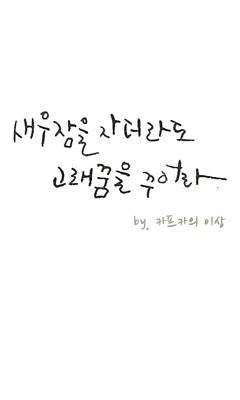 새우잠을 자더라도
고래꿈을 꾸어라
by. 카프카의 이상